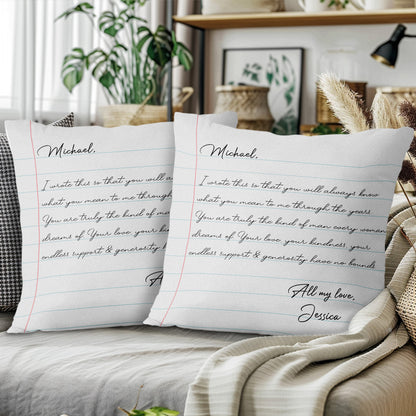 Michael,
I wrote this so that you will
what you mean to me through
You are truly the kind of man
dreams of. Your love, your kind
endless support & generosity have
A
Michael,
I wrote this so that you will always know
what you mean to me through the years
You are truly the kind of men every women
dreams of Your love your kindness your
endless support & generosity have no bounds
All my love,
Jessica